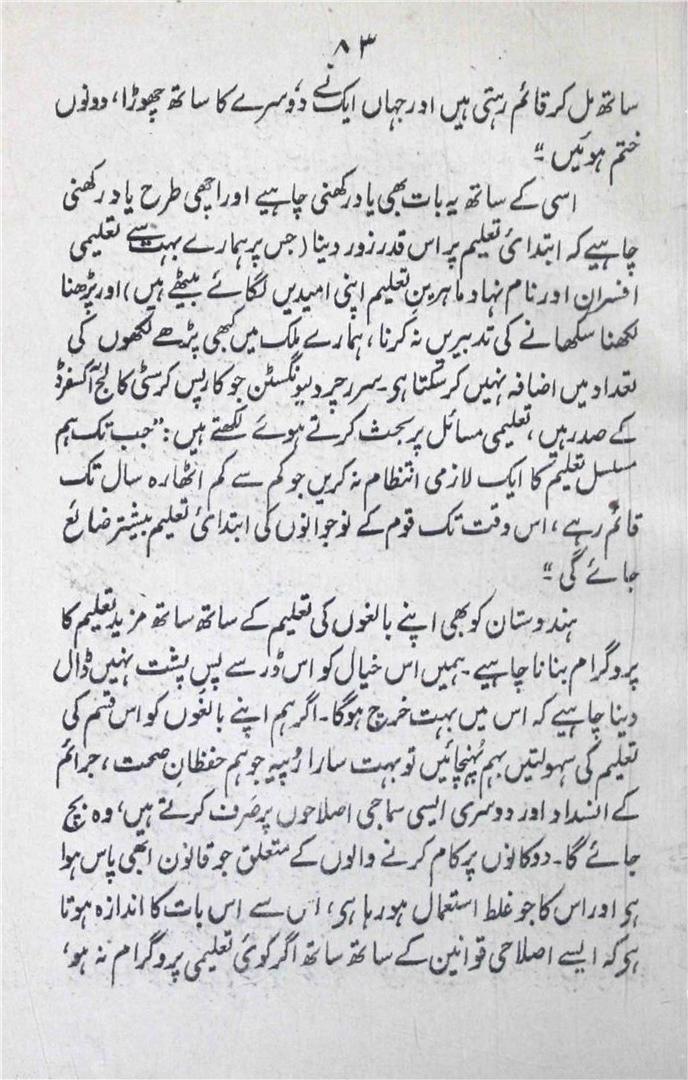 ۸۳
ساتھ مل کر قائم رہتی ہیں اور جہاں ایک نے دوسرے کا ساتھ چھوڑا، دونوں
ختم ہوئیں "
اسی کے ساتھ یہ بات بھی یاد رکھنی چاہیے اور اچھی طرح یاد رکھنی
چاہیے کہ ابتدائی تعلیم پر اس قدر زور دینا (جس پر ہمارے بہت سے تعلیمی
افسران اور نام نہاد ماہرینِ تعلیم اپنی امیدیں لگائے بیٹھے ہیں) اور پڑھنا
لکھنا سکھانے کی تدبیریں نہ کرنا، ہمارے ملک میں کبھی پڑھے لکھوں کی
تعداد میں اضافہ نہیں کر سکتا ہی۔ سر رچرڈ لیونگسٹن جو کارپس کرسٹی کالج آکسفرڈ
کے صدر ہیں، تعلیمی مسائل پر بحث کرتے ہوئے لکھتے ہیں : "جب تک ہم
مسلسل تعلیم کا ایک لازمی انتظام نہ کریں جو کم سے کم اٹھارہ سال تک
قائم رہے، اس وقت تک قوم کے نوجوانوں کی ابتدائی تعلیم بیشتر ضائع
جائے گی "
ہندوستان کو بھی اپنے بالغوں کی تعلیم کے ساتھ ساتھ مزید تعلیم کا
پروگرام بنانا چاہیے۔ ہمیں اس خیال کو اس ڈر سے پسِ پشت نہیں ڈال
دینا چاہیے کہ اس میں بہت خرچ ہوگا۔ اگر ہم اپنے بالغوں کو اس قسم کی
تعلیم کی سہولتیں بہم پہنچائیں تو بہت سارا رُپیہ جو ہم حفظانِ صحت، جرائم
کے انسداد اور دوسری ایسی سماجی اصلاحوں پر صَرف کرتے ہیں، وہ بچ
جائے گا۔ دوکانوں پر کام کرنے والوں کے متعلق جو قانون ابھی پاس ہوا
ہی اور اس کا جو غلط استعمال ہو رہا ہی، اس سے اس بات کا اندازہ ہوتا
ہی کہ ایسے اصلاحی قوانین کے ساتھ ساتھ اگر کوئی تعلیمی پروگرام نہ ہو،